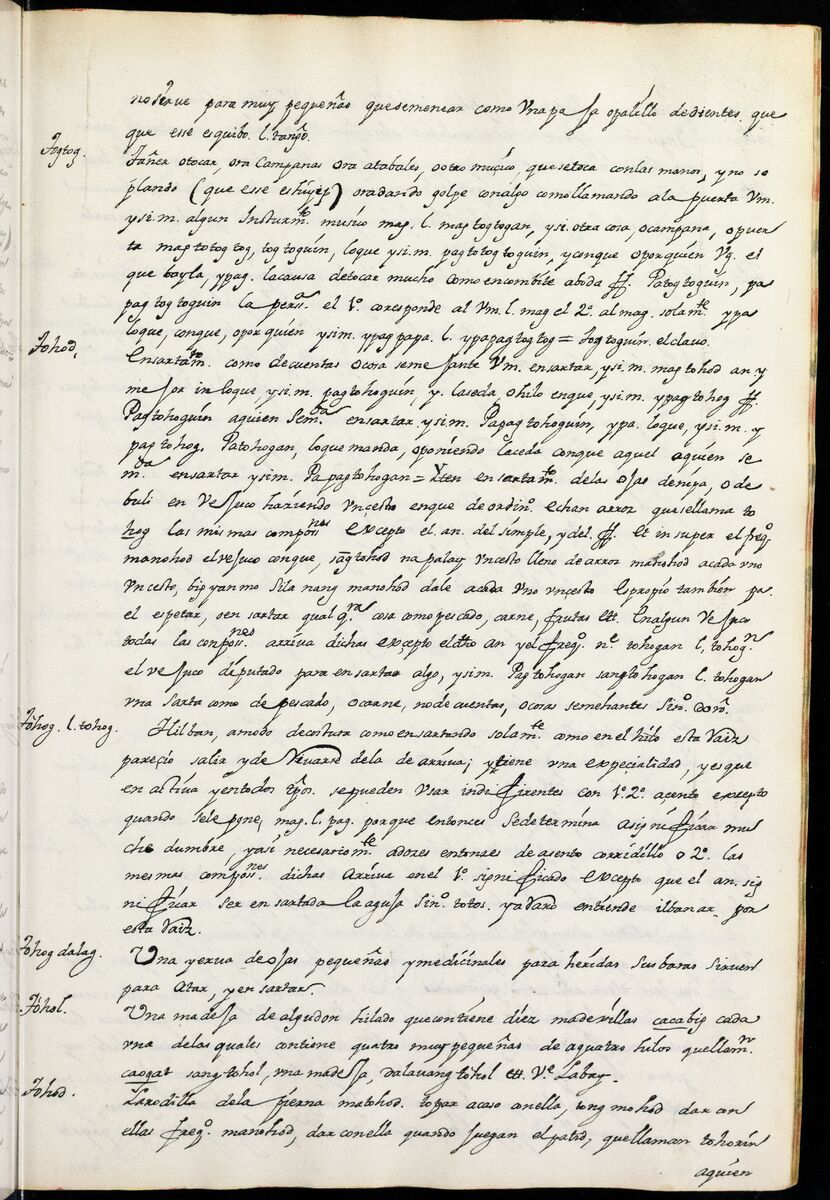 no serue para muy pequeñas que semencar como vna pa ja o palillo de dientes que
que esse es quibo. l. tango.
Togtog.
Tañer o tocar, ora Campanas ora atabales, o otro mucico, que se toca con las manos, y no so
plando (que esse es hiyip) ora dando golpe con algo como llamando a la puerta Vm.
y si.m. algun Insturm.to musico mag. l. mag togtogan, y si otra cosa, o campana, o puer
ta mag totogtog, tog toguin, lo que y si.m. pag totogtoguin, y con que o por quien Vg. el
que bayla, y pag. la causa de tocar mucho como en combite a boda ff. Patogtoguin, pa
pag tog toguin la pers.a el 1.o coresponde al Vm. l. mag el 2.o al mag. solam.te ypa
lo que, con que, o por quien y si m. ypag papa. l. ypapagtogtog = togtoguin. el clavo.
Tohod,
Ensartam.to como de cuentas o cosa seme jante Vm. ensartar, y si.m. mag tohod an y
me jor in lo que, y si.m. pag tohoguin, y. la seda, o hilo en que, y si.m. ypag tohog ff.
Pag tohoguin a quien se m.da ensartar y si.m. Papag tohoguin, ypa. lo que, y si.m. y
pag tohog. Patohogan, lo que manda, o poniendo la ceda con que aquel a quien se
m.da ensartar y si m. Papag tohogan = Yten ensartam.to de las ojas de nipa, o de
buli en Vejuco haziendo vn cesto en que de ordin.o echan arroz que se llama to
hog las mismas compos.nes excepto el an. del simple, y del ff. et in super el freq.o
manohod el vejuco con que, sang tohod na palay vn cesto lleno de arroz manohod a cada vno
vn cesto, bigyan mo sila nang manohod dale a cada vno vn cesto Es propio tambien pa.
el espetar, o ensartar qualq.ra cosa como pescado, carne, frutas ett. En algun Vejuco
todas las conpos.nes arriva dichas excepto el dho an y el freq.o n.e tohogan l. tohog.n
el vejuco diputado para ensartar algo, y si m. Pag tohogan sang tohogan l. tohogan
vna sarta como de pescado, o carne, no de cuentas, o cosas semehantes Sin.o don.
Tohog. l. tohog.
Hilban, a modo de costura como ensartando solam.te como en el hilo esta Raiz
pareçio salir y de Rivarse de la de arriva; y tiene vna expecialidad, y es que
en activa y en todos tpos. se pueden vsar indi ferentes con 1.o 2.o açento excepto
quando se le pone, mag. l. pag. porque entonces se determina a signi ficar mu
che dumbre, y asi necesariom.te adores entonses de asento corridillo o 2.o las
mesmas compos.nes dichas Arriva en el 1.o signi ficado Excepto que el an. sig
ni ficar ser ensartada la aguja Sin.o totos. y a Raro entiende ilbanar por
esta Raiz.
Tohog dalag.
Una yerua de ojas pequeñas y medicinales para heridas Sus baras siruen
para Atar, y ensartar.
Tohol.
Una madeja de algudon hilado que contiene diez maderillas cacabig cada
vna de las quales contiene quatro muy pequeñas de a quatro hilos que llam.n
caogat sang tohol, vna madeja, dalauang tohol ett. V.e Labay.
Tohod.
La rodilla de la pierna matohod. topar acaso con ella, tong mohod dar con
ellas freq.o manohod, dar con ella quando juegan el patid, que llaman tohorin
a quien